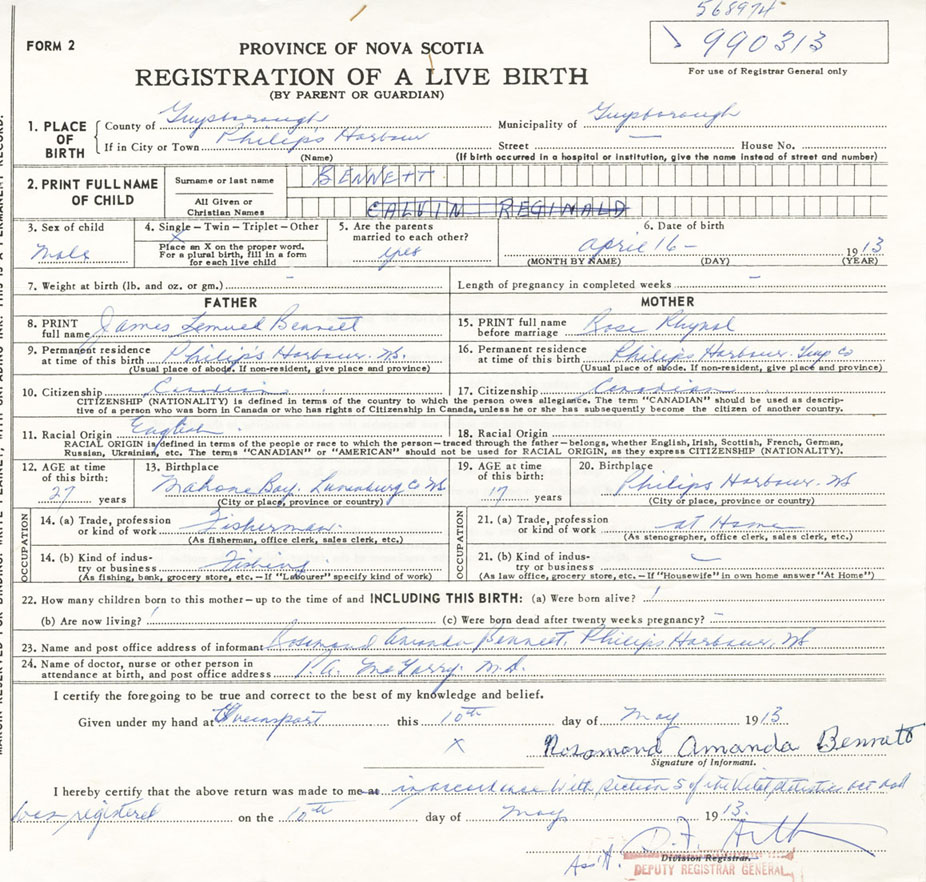 568974
FORM 2
PROVINCE OF NOVA SCOTIA
990313
REGISTRATION OF A LIVE BIRTH
For use of Registrar General only
(BY PARENT OR GUARDIAN)
1. PLACE OF BIRTH
County of Guysborough Municipality of Guysborough
If in City or Town Philip's Harbour Street — House No.
(Name) (If birth occurred in a hospital or institution, give the name instead of street and number)
2. PRINT FULL NAME OF CHILD
Surname or last name BENNETT
All Given or Christian Names CALVIN REGINALD
3. Sex of child Male
4. Single — Twin — Triplet — Other
X
Place an X on the proper word. For a plural birth, fill in a form for each live child
5. Are the parents married to each other? yes
6. Date of birth
April 16 — 1913
(MONTH BY NAME) (DAY) (YEAR)
7. Weight at birth (lb. and oz. or gm.) — Length of pregnancy in completed weeks —
FATHER MOTHER
8. PRINT full name James Lemuel Bennett
15. PRINT full name before marriage Rose Rhynol
9. Permanent residence at time of this birth Philip's Harbour. NS.
(Usual place of abode. If non-resident, give place and province)
16. Permanent residence at time of this birth Philips Harbour. Guy Co
(Usual place of abode. If non-resident, give place and province)
10. Citizenship Canadian 17. Citizenship Canadian
CITIZENSHIP (NATIONALITY) is defined in terms of the country to which the person owes allegiance. The term "CANADIAN" should be used as descrip-
tive of a person who was born in Canada or who has rights of Citizenship in Canada, unless he or she has subsequently become the citizen of another country.
11. Racial Origin English 18. Racial Origin
RACIAL ORIGIN is defined in terms of the people or race to which the person — traced through the father — belongs, whether English, Irish, Scottish, French, German,
Russian, Ukrainian, etc. The terms "CANADIAN" or "AMERICAN" should not be used for RACIAL ORIGIN, as they express CITIZENSHIP (NATIONALITY).
12. AGE at time of this birth: 27 years
13. Birthplace
Mahone Bay. Lunenburg Co NS
(City or place, province or country)
19. AGE at time of this birth: 17 years
20. Birthplace
Philips Harbour. NS
(City or place, province or country)
OCCUPATION
14. (a) Trade, profession or kind of work Fisherman
(As fisherman, office clerk, sales clerk, etc.)
14. (b) Kind of indus-
try or business Fishing
(As fishing, bank, grocery store, etc. — If "Labourer" specify kind of work)
OCCUPATION
21. (a) Trade, profession or kind of work at Home
(As stenographer, office clerk, sales clerk, etc.)
21. (b) Kind of indus-
try or business —
(As law office, grocery store, etc. — If "Housewife" in own home answer "At Home")
22. How many children born to this mother — up to the time of and INCLUDING THIS BIRTH: (a) Were born alive? 1
(b) Are now living? 1 (c) Were born dead after twenty weeks pregnancy? —
23. Name and post office address of informant Rosamond Amanda Bennett, Philips Harbour, NS
24. Name of doctor, nurse or other person in
attendance at birth, and post office address P.A. McGarry. M.D.
I certify the foregoing to be true and correct to the best of my knowledge and belief.
Given under my hand at Queensport this 10th day of May 1913
X Rosamond Amanda Bennett
Signature of Informant.
I hereby certify that the above return was made to me at in accordance with Section 5 of the Vital Statistics act and
was registered on the 10th day of May 1913.
Ass't.
Division Registrar.
DEPUTY REGISTRAR GENERAL